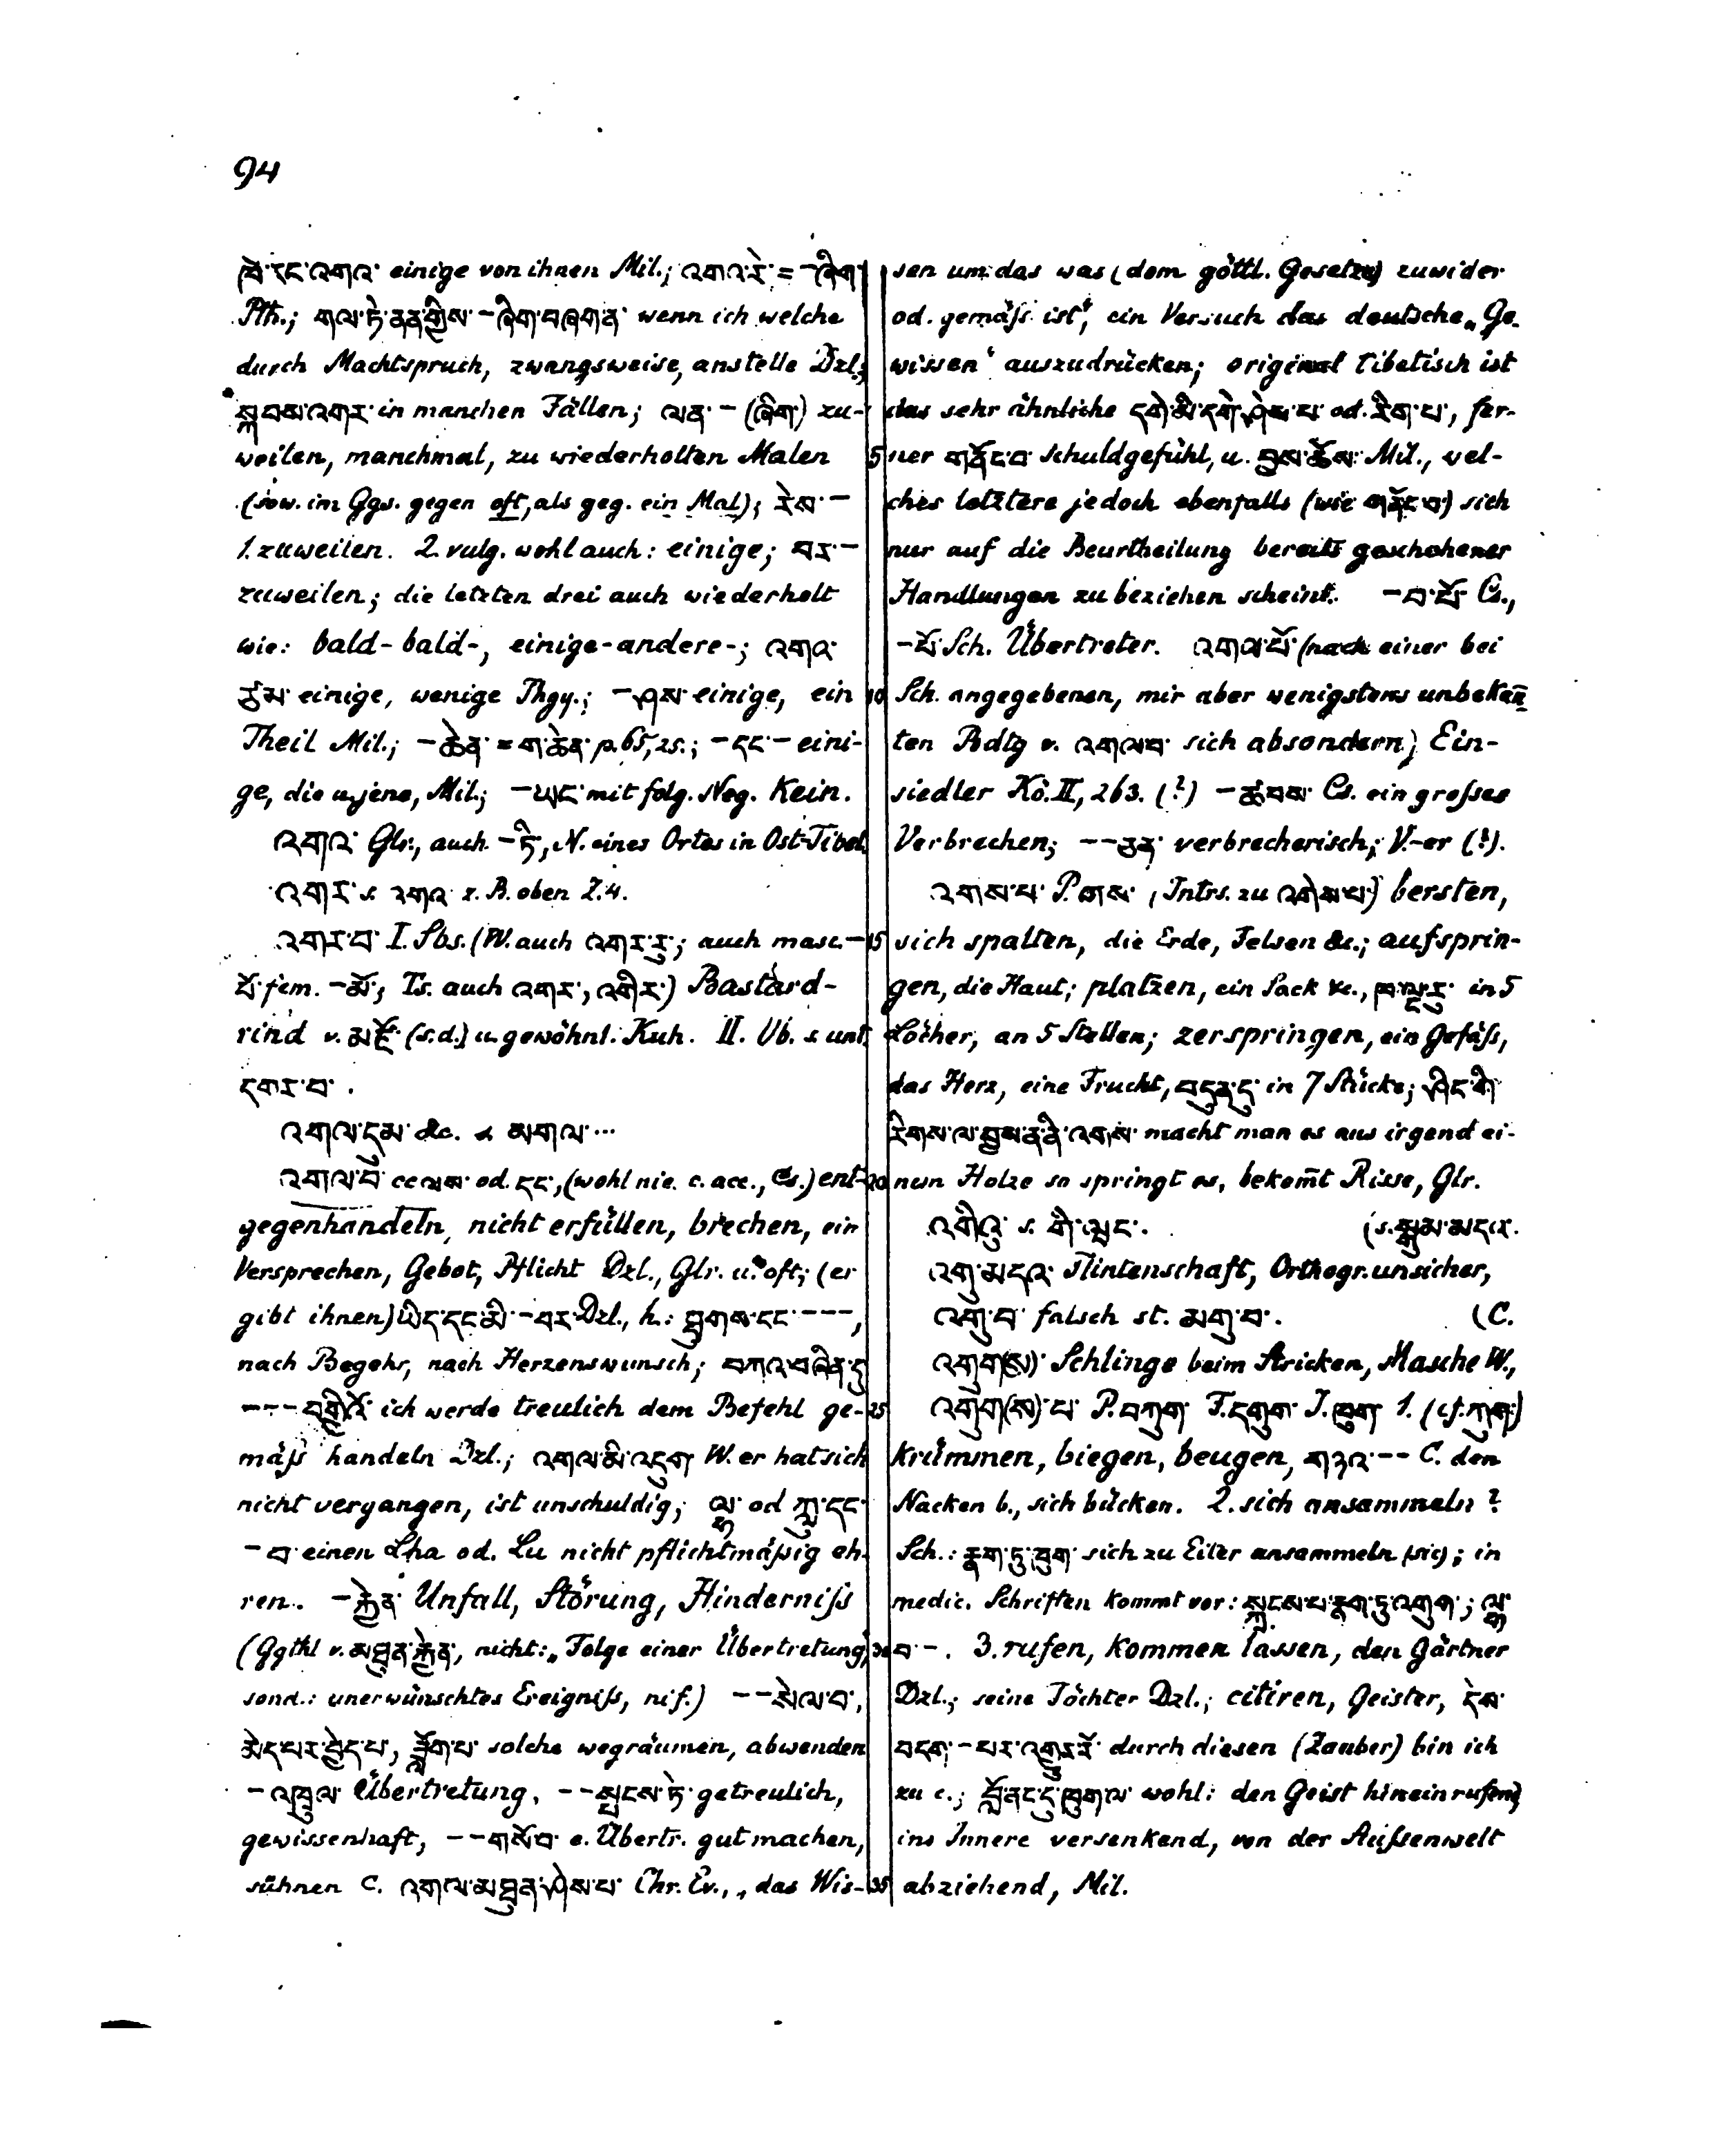 94
ཁྲི་དང་འགའ་ einige von ihnen Mil.; འགའ་རེ་ = –ཞིག་
Pth.; གལ་ཏེ་ནན་གྱིས་ –ཞིག་བཞག་ན་ wenn ich welche
durch Machtspruch, zwangsweise, anstelle Dzl.;
སྐབས་འགར་ in manchen Fällen; ལན་ – (ཞིག་) zu-
weilen, manchmal, zu wiederholten Malen
(sow. im Ggs. gegen oft, als geg. ein Mal); རེས་ –
1. zuweilen. 2. vulg. wohl auch: einige; བར་ –
zuweilen; die letzten drei auch wiederholt
wie: bald-bald-, einige-andere-; འགའ་
ཙམ་ einige, wenige Thgy.; –ཤས་ einige, ein
Theil Mil.; –ཆེན་ = ག་ཆེན་ p. 65, 2s.; –དང་– eini-
ge, die u. jene, Mil.; –ཡང་ mit folg. Neg. Kein.
འགའ་ Glr., auch –ཏི་, N. eines Ortes in Ost-Tibet.
འགར་ s. འགའ z. B. oben Z. 4.
འགར་བ་ I. Sbs. (W. auch འགར་རུ་; auch masc. –
པོ་ fem. –མོ་, Ts. auch འགར་, འགིར་) Bastard-
rind v. མཛོ་ (s. d.) u. gewöhnl. Kuh. II. Vb. s. unt.
དགར་བ་.
འགལ་དུམ་ &c. s. མགལ་...
འགལ་བ་ cc ལས་ od. དང་, (wohl nie c. acc., Cs.) ent-
gegenhandeln, nicht erfüllen, brechen, ein
Versprechen, Gebot, Pflicht Dzl., Glr. u. oft; (er
gibt ihnen) ཡིད་དང་མི་ –བར་ Dzl., h.: ཐུགས་དང་ – – –,
nach Begehr, nach Herzenswunsch; བཀའ་བཞིན་དུ
– – – བགྱིའོ་ ich werde treulich dem Befehl ge-
mäß handeln Dzl.; འགལ་མི་འདུག W. er hat sich
nicht vergangen, ist unschuldig; ལྷ་ od ཀླུ་དང་
–བ་ einen Lha od. Lu nicht pflichtmäßig eh-
ren. –རྐྱེན་ Unfall, Störung, Hinderniß
(Ggthl v. མཐུན་རྐྱེན་, nicht: „Folge einer Übertretung,
sond.: unerwünschtes Ereigniß, nif.) – –སེལ་བ་,
མེད་པར་བྱེད་པ་, ཟློག་པ་ solche wegräumen, abwenden
–འཁྲུལ་ Übertretung. – –སྤངས་ཏེ་ getreulich,
gewissenhaft, – –གསོ་བ་ e. Übertr. gut machen,
sühnen C. འགལ་མཐུན་ཤེས་པ་ Chr. Ev., „das Wis-
sen um das was (dem göttl. Gesetze) zuwider
od. gemäß ist“, ein Versuch das deutsche „Ge-
wissen“ auszudrücken; original tibetisch ist
das sehr ähnliche དགེ་མི་དགེ་ཤེས་པ་ od. རིག་པ་, fer-
5 ner གནོང་བ་ Schuldgefühl, u. བྱས་ཆོས་ Mil., wel-
ches letztere jedoch ebenfalls (wie གནོང་བ་) sich
nur auf die Beurtheilung bereits geschehener
Handlungen zu beziehen scheint. –བ་པོ་ Cs.,
–པོ་ Sch. Übertreter. འགལ་པོ་ (nach einer bei
10 Sch. angegebenen, mir aber wenigstens unbekañ-
ten Bdtg v. འགལ་བ sich absondern) Ein-
siedler Kö. II, 263. (?) –ཚབས་ Cs. ein großes
Verbrechen; – –ཅན་ verbrecherisch; V.-er (?).
འགས་པ་ P. གས་ (Intrs. zu འགེས་པ་) bersten,
15 sich spalten, die Erde, Felsen &c.; aufsprin-
gen, die Haut; platzen, ein Sack &c., ཁ་ལྔ་རུ་ in 5
Löcher, an 5 Stellen; zerspringen, ein Gefäß,
das Herz, eine Frucht, བདུན་དུ་ in 7 Stücke; ཤིང་གི་
རིགས་ལ་བྱས་ན་ནི་འགས་ macht man es aus irgend ei-
20 nem Holze so springt es, bekom̄t Risse, Glr.
འགིའུ་ s. གི་ཝང་.
འགུ་མདའ་ Flintenschaft, Orthogr. unsicher, (s. སྒུམ་མདའ་.
འགུ་བ་ falsch st. མགུ་བ་.
འགུག(ས)་ Schlinge beim Stricken, Masche W., (C.
25 འགུག(ས)་པ་ P. བཀུག་ F. དགུག་ I. ཁུག 1. (cf. ཀུག་)
krümmen, biegen, beugen, གཉའ་– – C. den
Nacken b., sich bücken. 2. sich ansammeln?
Sch.: རྣག་ཏུ་ཁུག sich zu Eiter ansammeln (sic); in
medic. Schriften kommt vor: སྐྲངས་པ་རྣག་ཏུ་འགུག་; ལྷ་
30 བ་–. 3. rufen, kommen lassen, den Gärtner
Dzl.; seine Töchter Dzl.; citiren, Geister, དེས་
བདག་–པར་འགྱུར་རོ་ durch diesen (Zauber) bin ich
zu c.; བློ་ནང་དུ་ཁུགལ་ wohl: den Geist hineinrufend,
ins Innere versenkend, von der Außenwelt
35 abziehend, Mil.